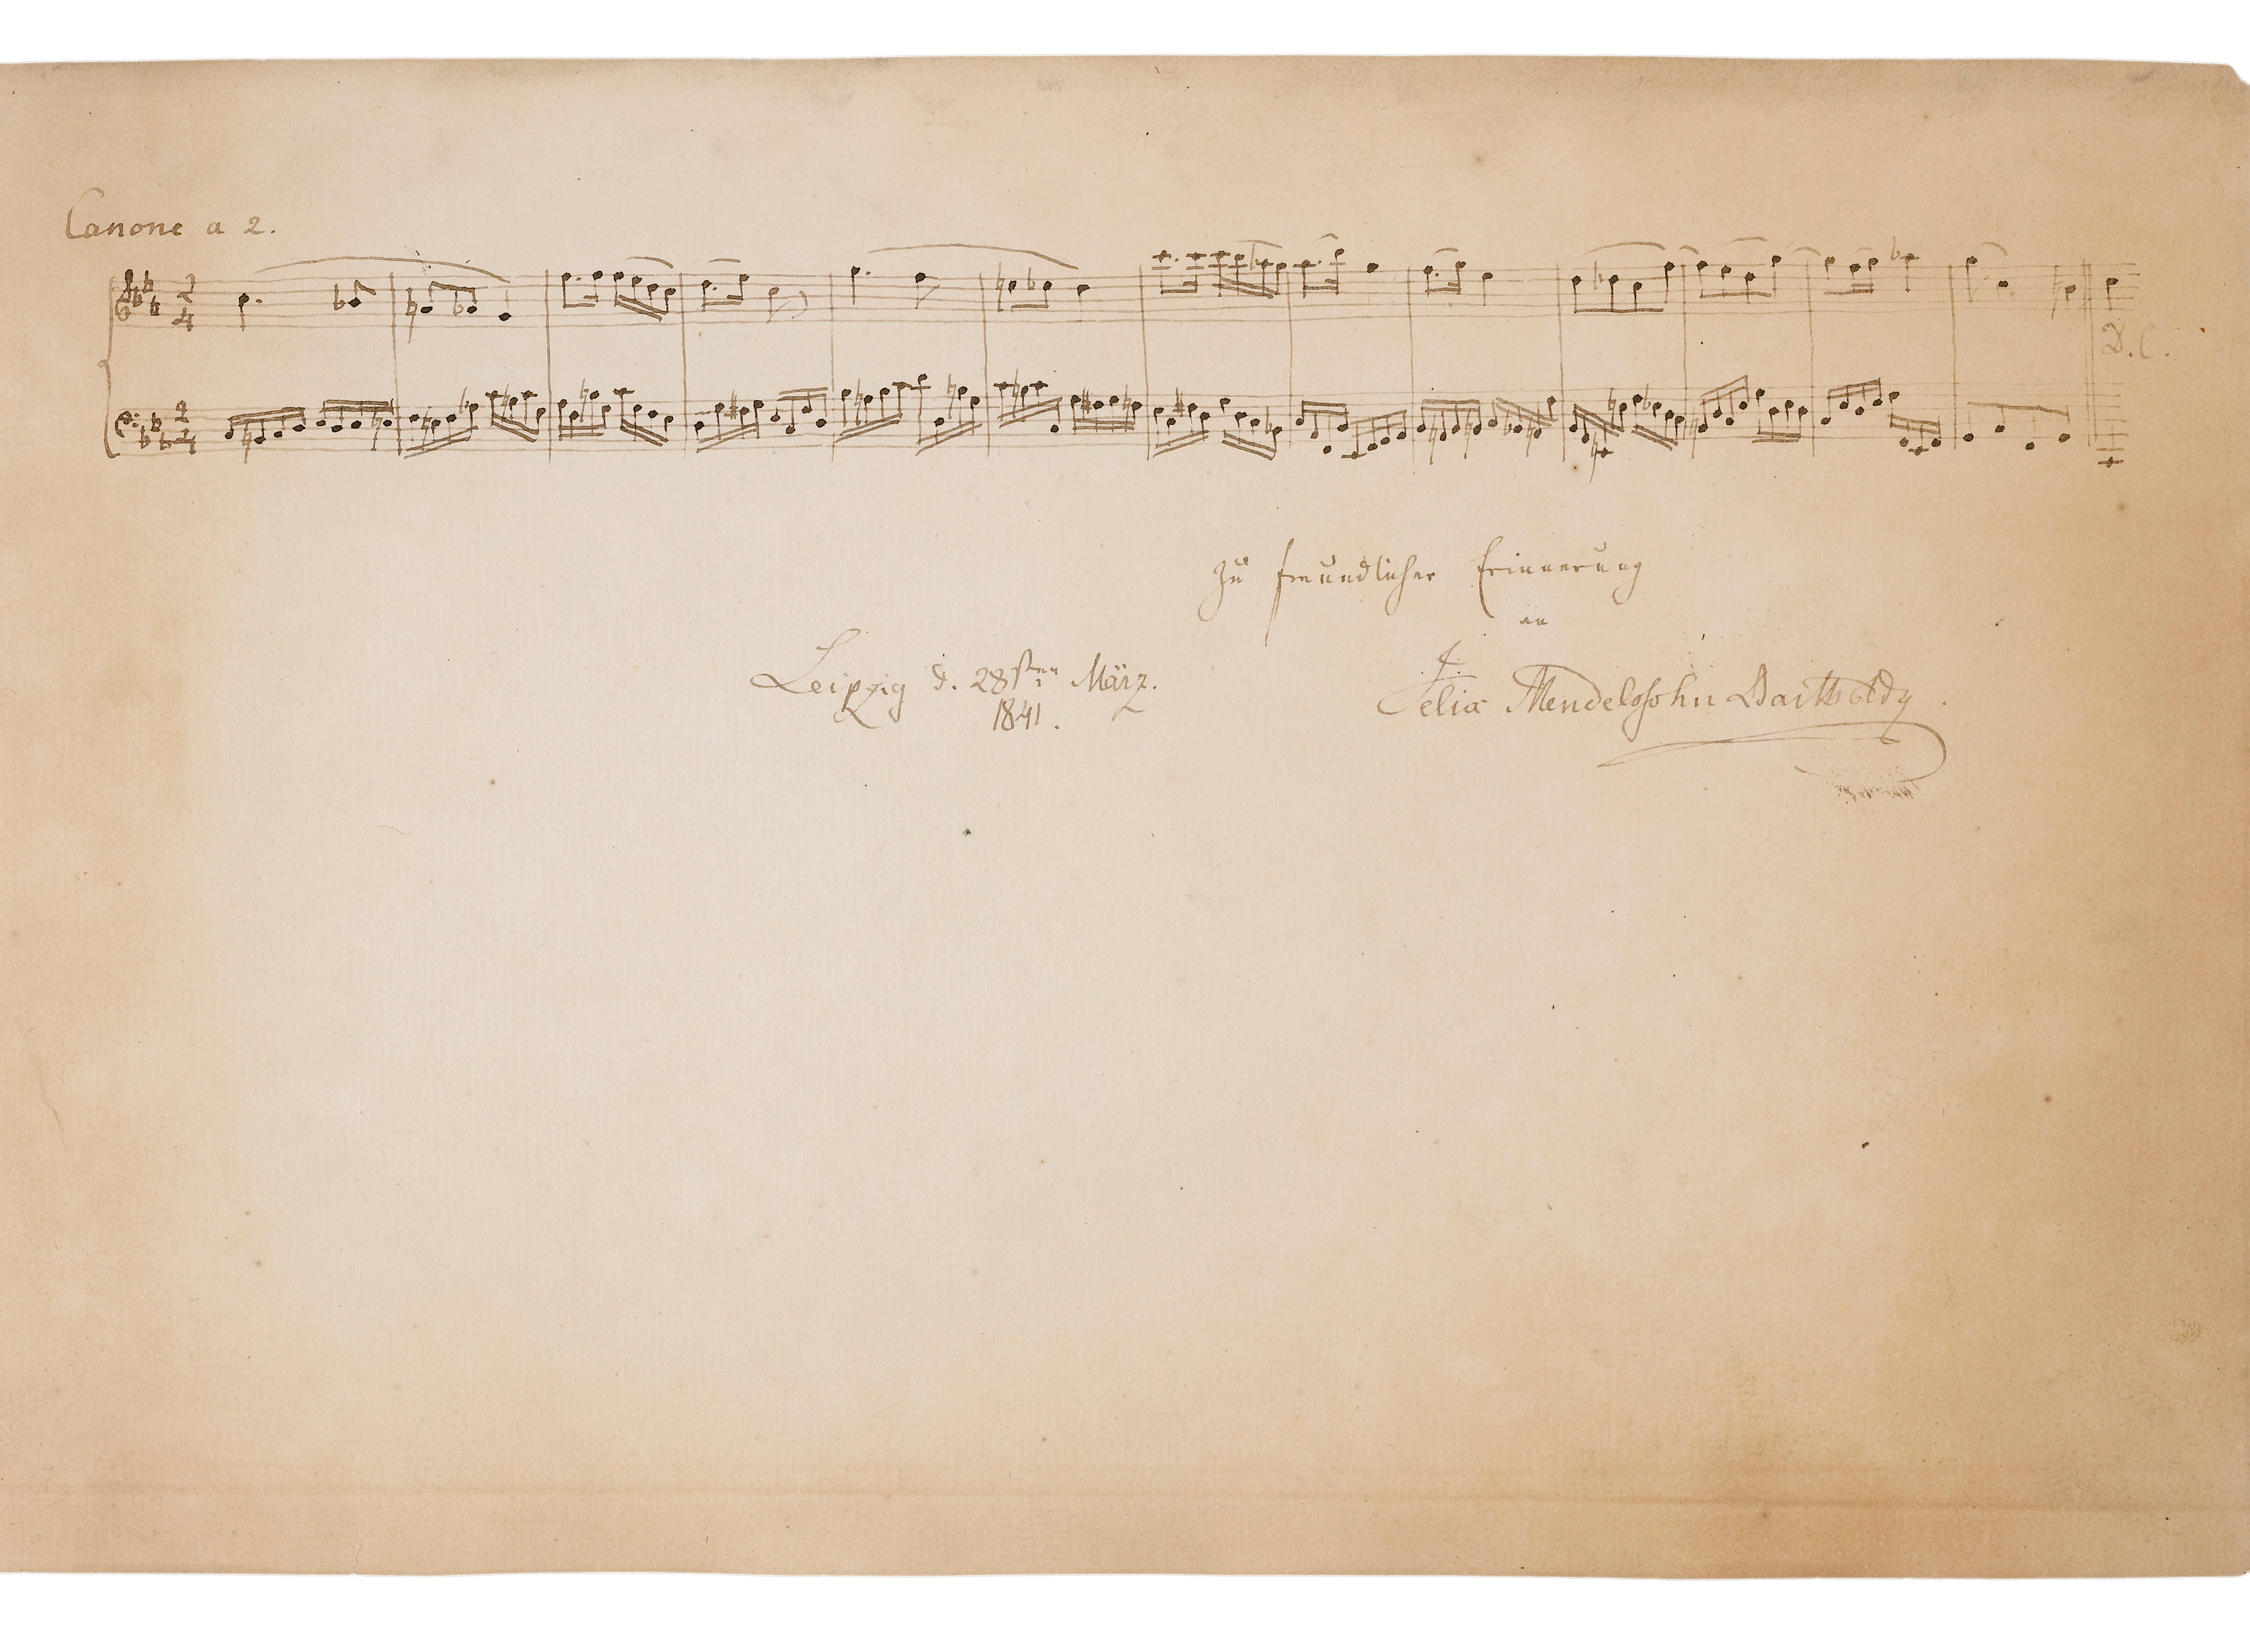 Canone a 2.
2
4
2
4
D.C.
Zu freundlicher Erinnerung
an
Leipzig d. 28sten März.
1841.
Felix Mendelssohn Bartholdy.